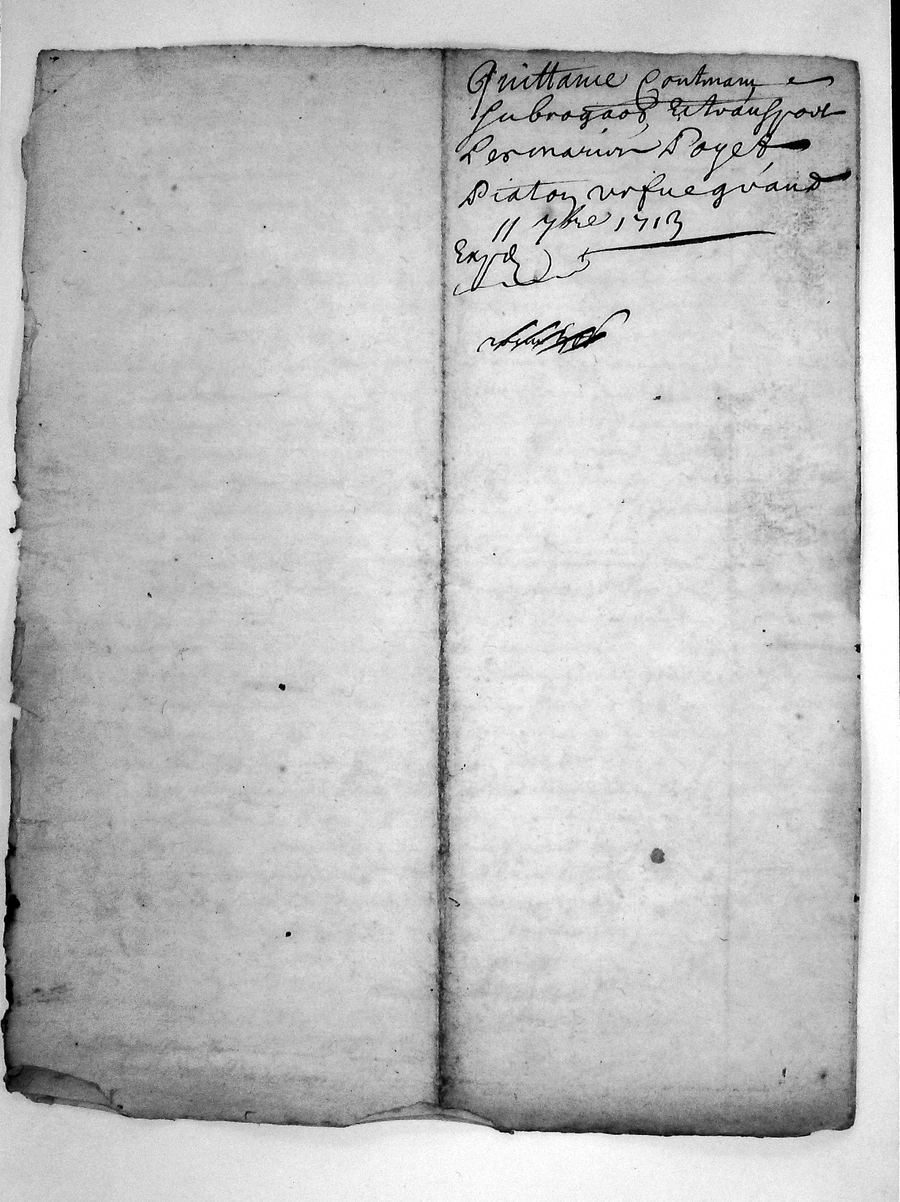 Quittance Contenant
Subrogaon Et transport
Les marion Poyet
Piaton ursule grand
11 7bre 1713
Expd